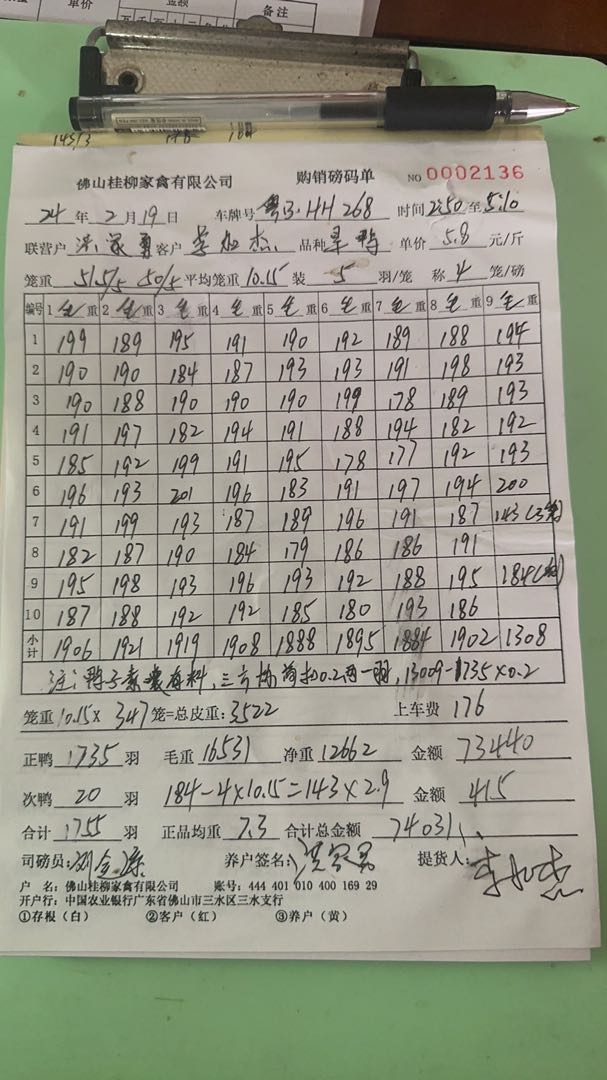 单价 金额 备注
14513
佛山桂柳家禽有限公司 购销磅码单 NO 0002136
24 年 2 月 19 日 车牌号 粤J·HH268 时间 2:50 至 5:10
联营户 洪家勇 客户 李灿杰 品种 旱鸭 单价 5.8 元/斤
笼重 51.5/5 50/5 平均笼重 10.15 装 5 羽/笼 称 4 笼/磅
编号 1 毛重 2 毛重 3 毛重 4 毛重 5 毛重 6 毛重 7 毛重 8 毛重 9 毛重
1 199 189 195 191 190 192 189 188 194
2 190 190 184 187 193 193 191 198 193
3 190 188 190 190 190 199 178 189 193
4 191 197 182 194 191 188 194 182 192
5 185 192 199 191 195 178 177 192 193
6 196 193 201 196 183 191 197 194 200
7 191 199 193 187 189 196 191 187 143(3笼)
8 182 187 190 184 179 186 186 191
9 195 198 193 196 193 192 188 195 184
10 187 188 192 192 185 180 193 186
小计 1906 1921 1919 1908 1888 1895 1884 1902 1308
注:鸭子素囊存料,三方协商扣0.2两一羽,13009-1735×0.2
笼重 10.15× 347 笼=总皮重: 3522 上车费 176
正鸭 1735 羽 毛重 16531 净重 12662 金额 73440
次鸭 20 羽 184-4×10.15=143×2.9 金额 415
合计 1755 羽 正品均重 7.3 合计总金额 74031
司磅员: 养户签名: 洪家勇 提货人: 李灿杰
户 名:佛山桂柳家禽有限公司 账号:444 401 010 400 169 29
开户行:中国农业银行广东省佛山市三水区三水支行
①存根(白) ②客户(红) ③养户(黄)